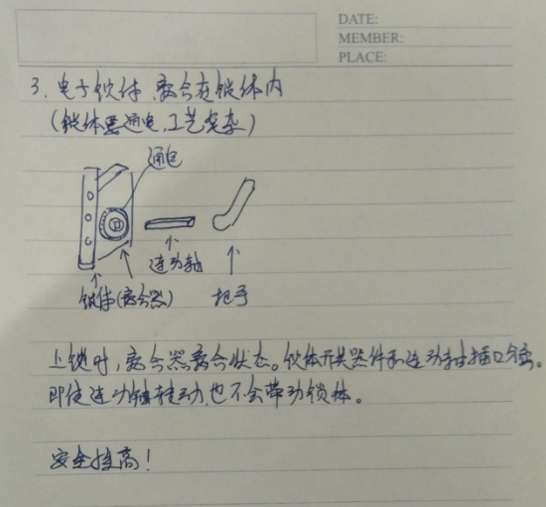 DATE:
MEMBER:
PLACE:
3. 电子锁体,离合在锁体内
(锁体要通电,工艺复杂)
通电
连动轴
锁体(离合器)
把手
上锁时,离合器离合状态。锁体开关器件和连动轴插口分离。
即使连动轴转动,也不会带动锁体。
安全性高!